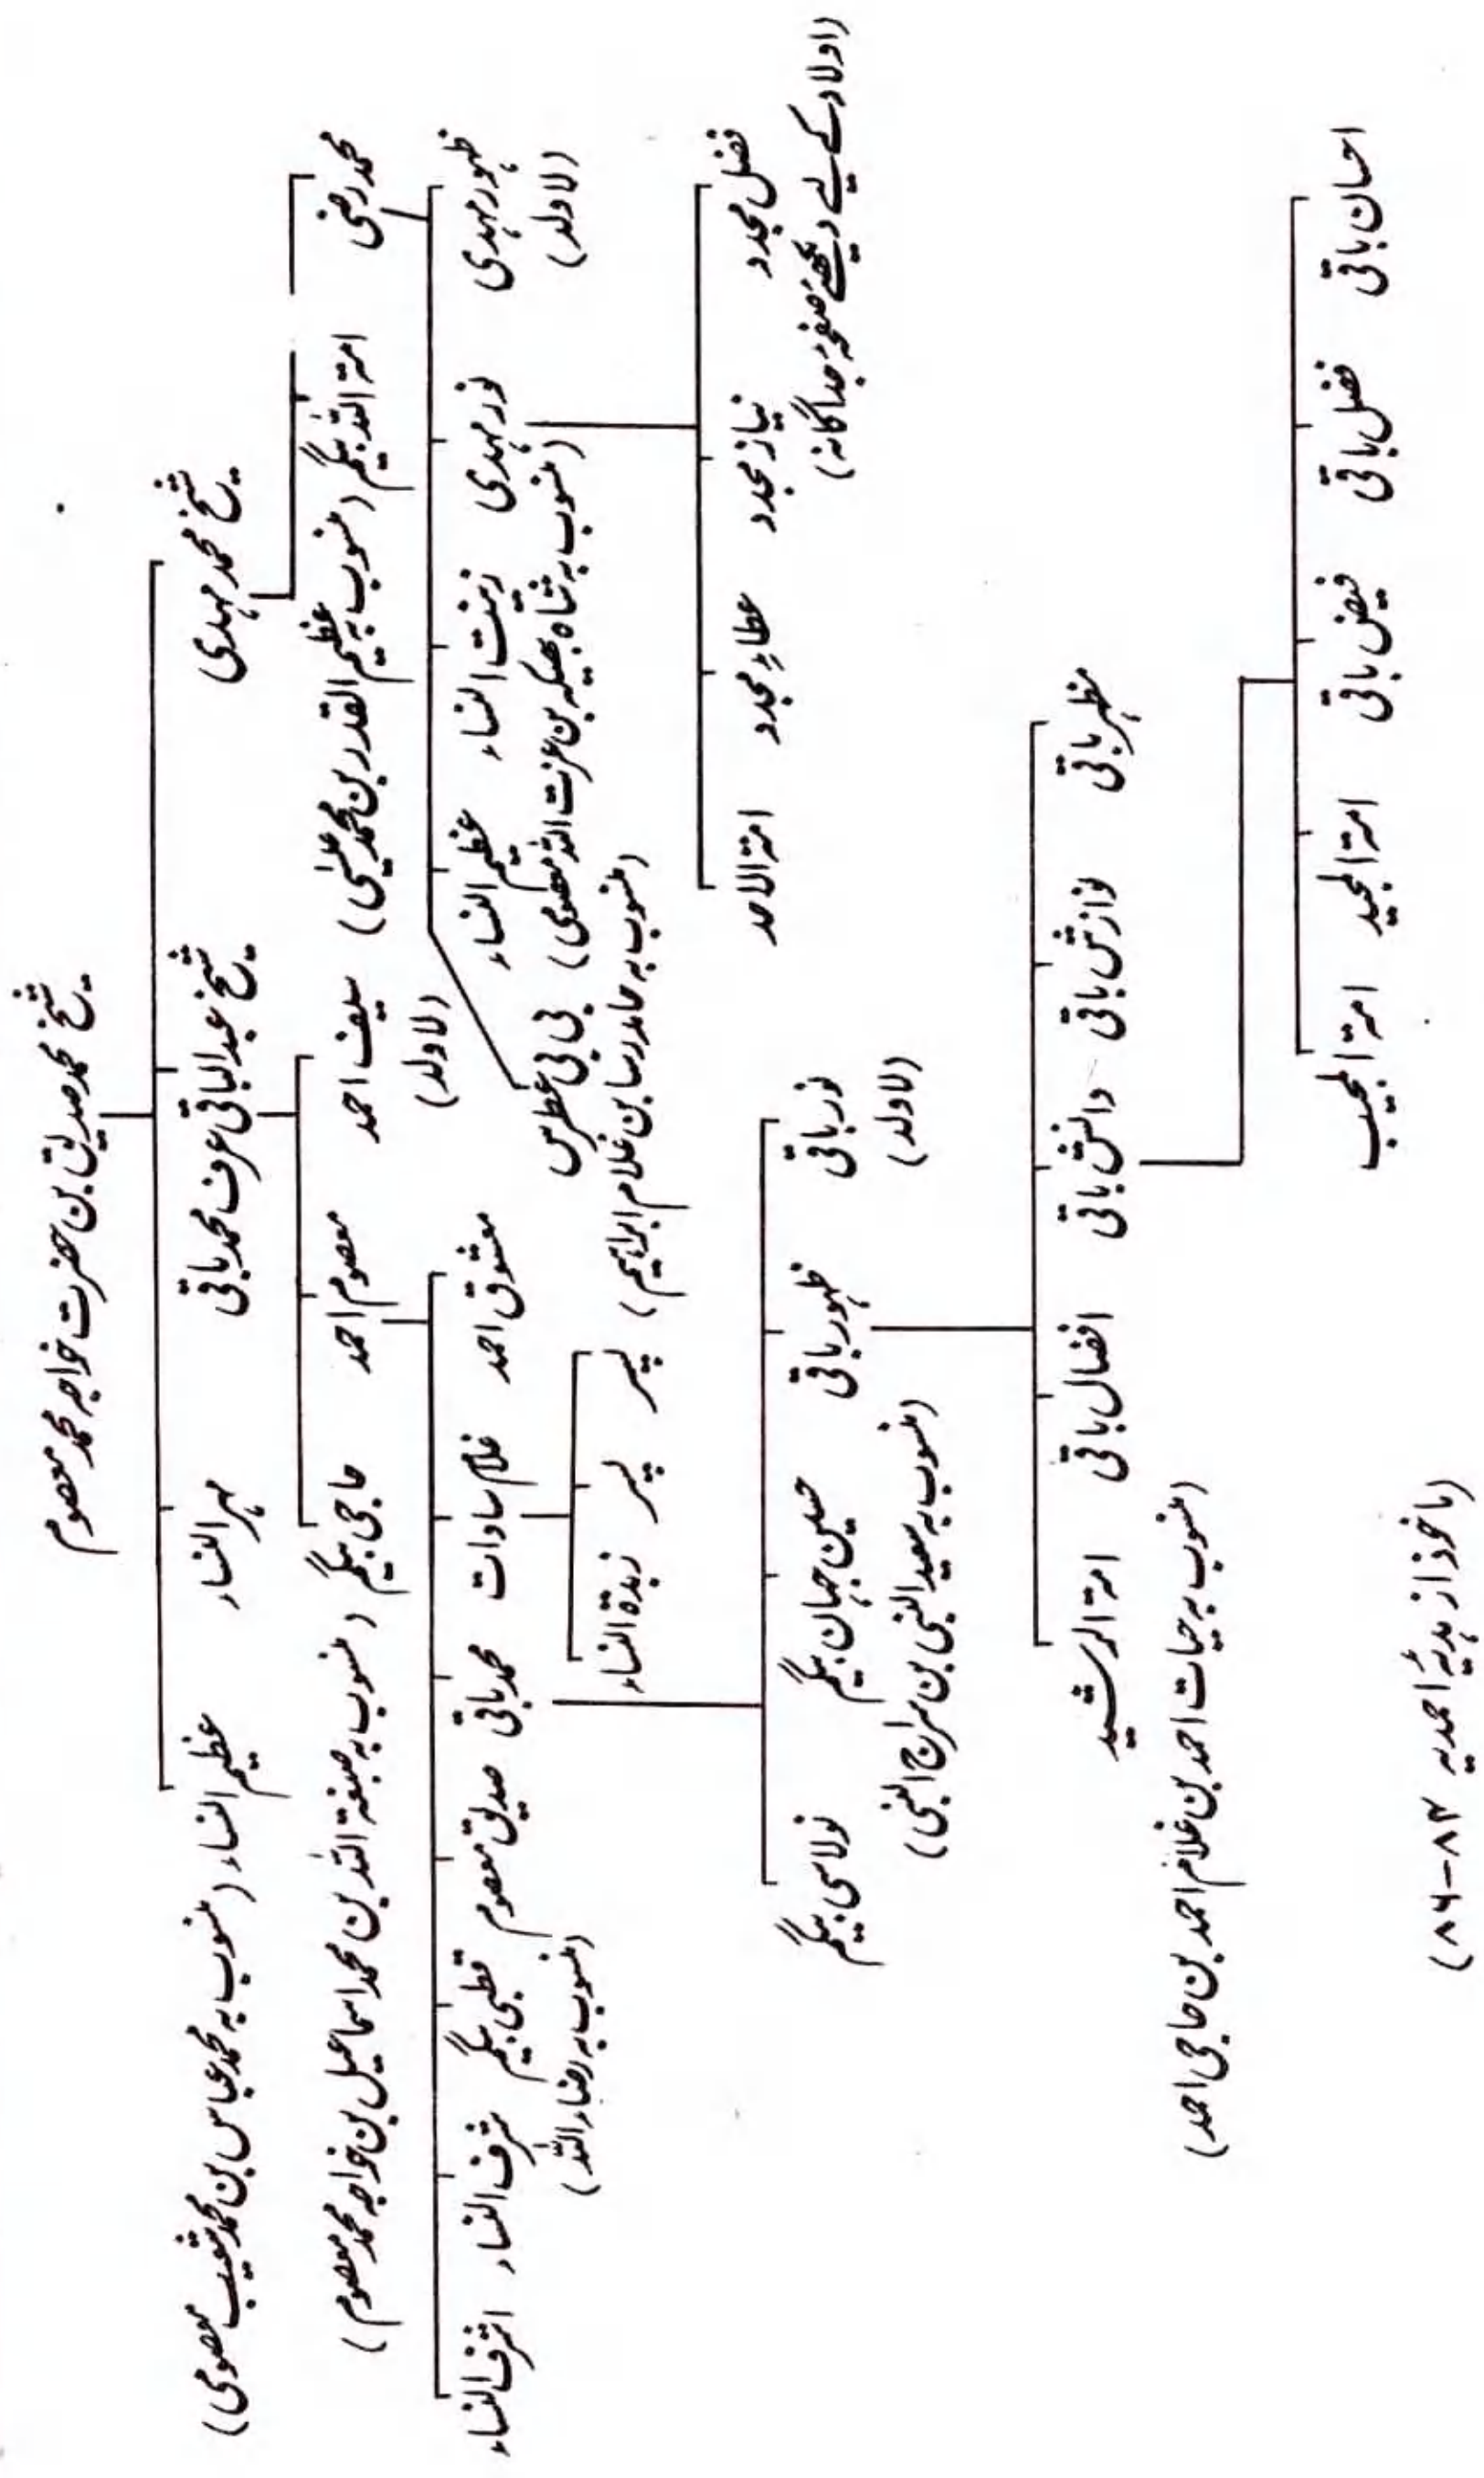 شیخ محمد صدیق بن حضرت خواجہ محمد معصوم
شیخ محمد مہدی
شیخ عبدالباقی عرف محمد باقی
مہر النساء
عظیم النساء (منسوب بہ محمد عباس بن محمد شعیب معصومی)
محمد رضی
امۃ اللہ بیگم (منسوب بہ عظیم القدر بن محمد عیسٰی)
سیف احمد
(لاولد)
معصوم احمد
حاجی بیگم (منسوب بہ صبغۃ اللہ بن محمد اسماعیل بن خواجہ محمد معصوم)
ظہور مہدی
(لاولد)
نور مہدی
زینت النساء
(منسوب بہ شاہ بھیکہ بن عزت اللہ معصومی)
عظیم النساء
بی بی
(منسوب بہ حامد رسا بن غلام ابراہیم)
معشوق احمد
غلام سادات
محمد باقی
صدیق معصوم
قطبی بیگم
(منسوب بہ رضاء اللہ)
شرف النساء
اشرف النساء
پسر
پسر
زبدۃ النساء
فضل مجدد
نیاز مجدد
عطاءِ مجدد
امۃ الاحد
(اولاد کے لیے دیکھیے صفحہ جداگانہ)
نور باقی
(لاولد)
ظہور باقی
حسین جہاں بیگم
(منسوب بہ سعید النبی بن سراج النبی)
نولاسی بیگم
مظہر باقی
نوازش باقی
دانش باقی
افضال باقی
امۃ الرشید
(منسوب بہ حیات احمد بن غلام احمد بن حاجی احمد)
احسان باقی
فضل باقی
فیض باقی
امۃ المجید
امۃ المجیب
(ماخوذ از ہدیۂ احمدیہ ۸۴-۸۶)